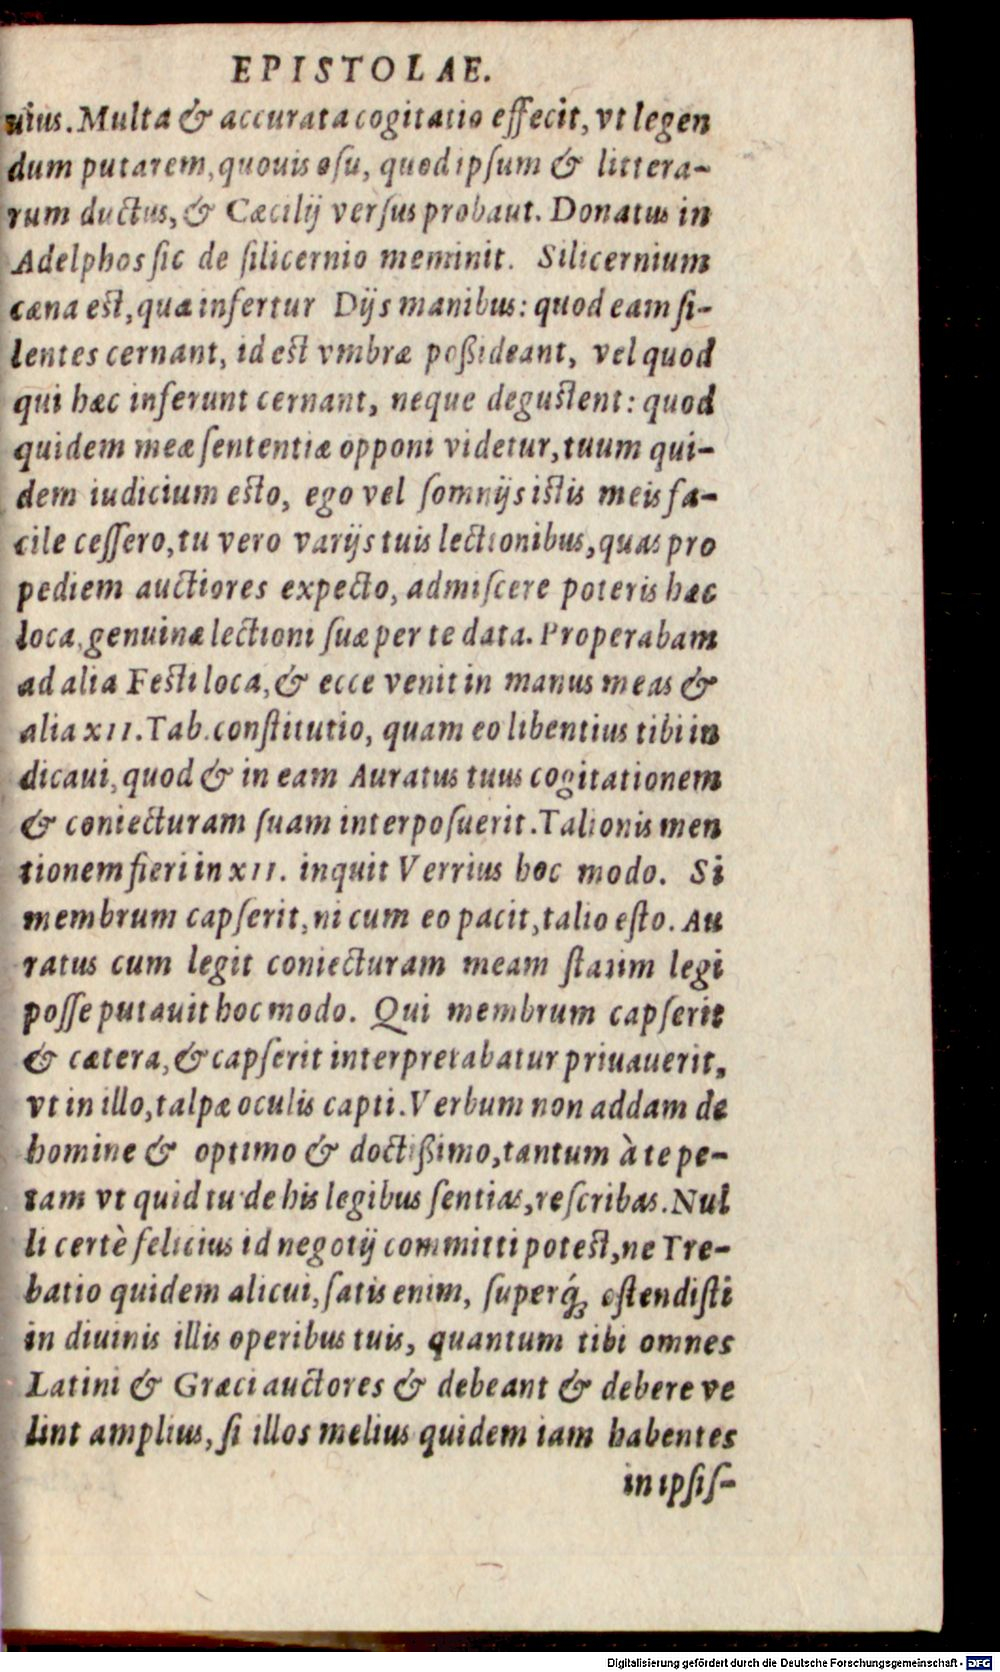 EPISTOLAE.
uius. Multa & accurata cogitatio effecit, vt legen
dum putarem, quouis osu, quod ipsum & littera-
rum ductus, & Cæcilij versus probaut. Donatus in
Adelphos sic de silicernio meminit. Silicernium
cæna est, quæ infertur Dijs manibus: quod eam si-
lentes cernant, id est vmbræ poßideant, vel quod
qui hæc inferunt cernant, neque degustent: quod
quidem meæ sententiæ opponi videtur, tuum qui-
dem iudicium esto, ego vel somnijs istis meis fa-
cile cessero, tu vero varijs tuis lectionibus, quas pro
pediem auctiores expecto, admiscere poteris hæc
loca, genuinæ lectioni suæ per te data. Properabam
ad alia Festi loca, & ecce venit in manus meas &
alia XII. Tab. constitutio, quam eo libentius tibi in
dicaui, quod & in eam Auratus tuus cogitationem
& coniecturam suam interposuerit. Talionis men
tionem fieri in XII. inquit Verrius hoc modo. Si
membrum capserit, ni cum eo pacit, talio esto. Au
ratus cum legit coniecturam meam statim legi
posse putauit hoc modo. Qui membrum capserit
& cætera, & capserit interpretabatur priuauerit,
vt in illo, talpæ oculis capti. Verbum non addam de
homine & optimo & doctißimo, tantum à te pe-
tam vt quid tu de his legibus sentias, rescribas. Nul
li certè felicius id negotij committi potest, ne Tre-
batio quidem alicui, satis enim, superq́; ostendisti
in diuinis illis operibus tuis, quantum tibi omnes
Latini & Græci auctores & debeant & debere ve
lint amplius, si illos melius quidem iam habentes
in ipsis-
Digitalisierung gefördert durch die Deutsche Forschungsgemeinschaft - DFG